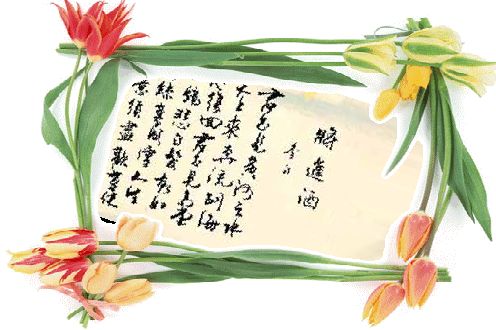 將進酒
李白
君不見黃河之水
天上來奔流到海
不復回君不見高堂
鏡悲白髮朝如
絲暮成雪人生
意須盡歡莫使